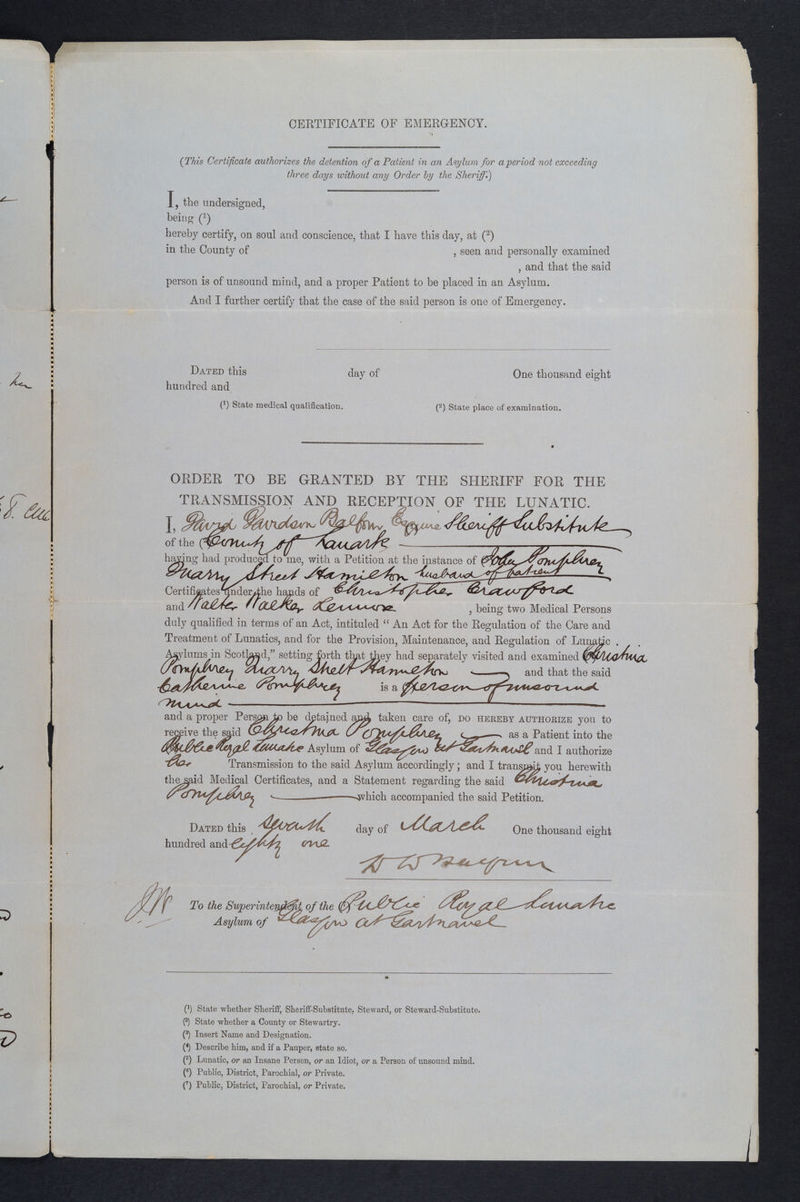 CERTIFICATE OF EMERGENCY.
(This Certificate authorizes the detention of a Patient in an Asylum for a period not exceeding
three days without any Order by the Sheriff.)
I, the undersigned,
being (¹)
hereby certify, on soul and conscience, that I have this day, at (²)
in the County of , seen and personally examined
, and that the said
person is of unsound mind, and a proper Patient to be placed in an Asylum.
And I further certify that the case of the said person is one of Emergency.
DATED this day of One thousand eight
hundred and
(¹) State medical qualification. (²) State place of examination.
ORDER TO BE GRANTED BY THE SHERIFF FOR THE
TRANSMISSION AND RECEPTION OF THE LUNATIC.
I, David Davidson Balfour, Esquire Sheriff Substitute
of the County of Lanark
having had produced to me, with a Petition at the instance of Pomphrey
Quarry Street Hamilton husband of patient
Certificates under the hands of Christopher Crawford
and Walter Walker Lennox , being two Medical Persons
duly qualified in terms of an Act, intituled “ An Act for the Regulation of the Care and
Treatment of Lunatics, and for the Provision, Maintenance, and Regulation of Lunatic
Asylums in Scotland,” setting forth that they had separately visited and examined Christina
Pomphrey Quarry Street Hamilton and that the said
Catherine Pomphrey is a person of unsound
mind
and a proper Person to be detained and taken care of, DO HEREBY AUTHORIZE you to
receive the said Christina Pomphrey as a Patient into the
Public Royal Lunatic Asylum of Glasgow at Gartnavel and I authorize
her Transmission to the said Asylum accordingly ; and I transmit you herewith
the said Medical Certificates, and a Statement regarding the said Christina
Pomphrey which accompanied the said Petition.
DATED this Seventh day of March One thousand eight
hundred and Eighty one
D D Balfour
To the Superintendent of the Public Royal Lunatic
Asylum of Glasgow at Gartnavel
(¹) State whether Sheriff, Sheriff-Substitute, Steward, or Steward-Substitute.
(²) State whether a County or Stewartry.
(³) Insert Name and Designation.
(⁴) Describe him, and if a Pauper, state so.
(⁵) Lunatic, or an Insane Person, or an Idiot, or a Person of unsound mind.
(⁶) Public, District, Parochial, or Private.
(⁷) Public, District, Parochial, or Private.